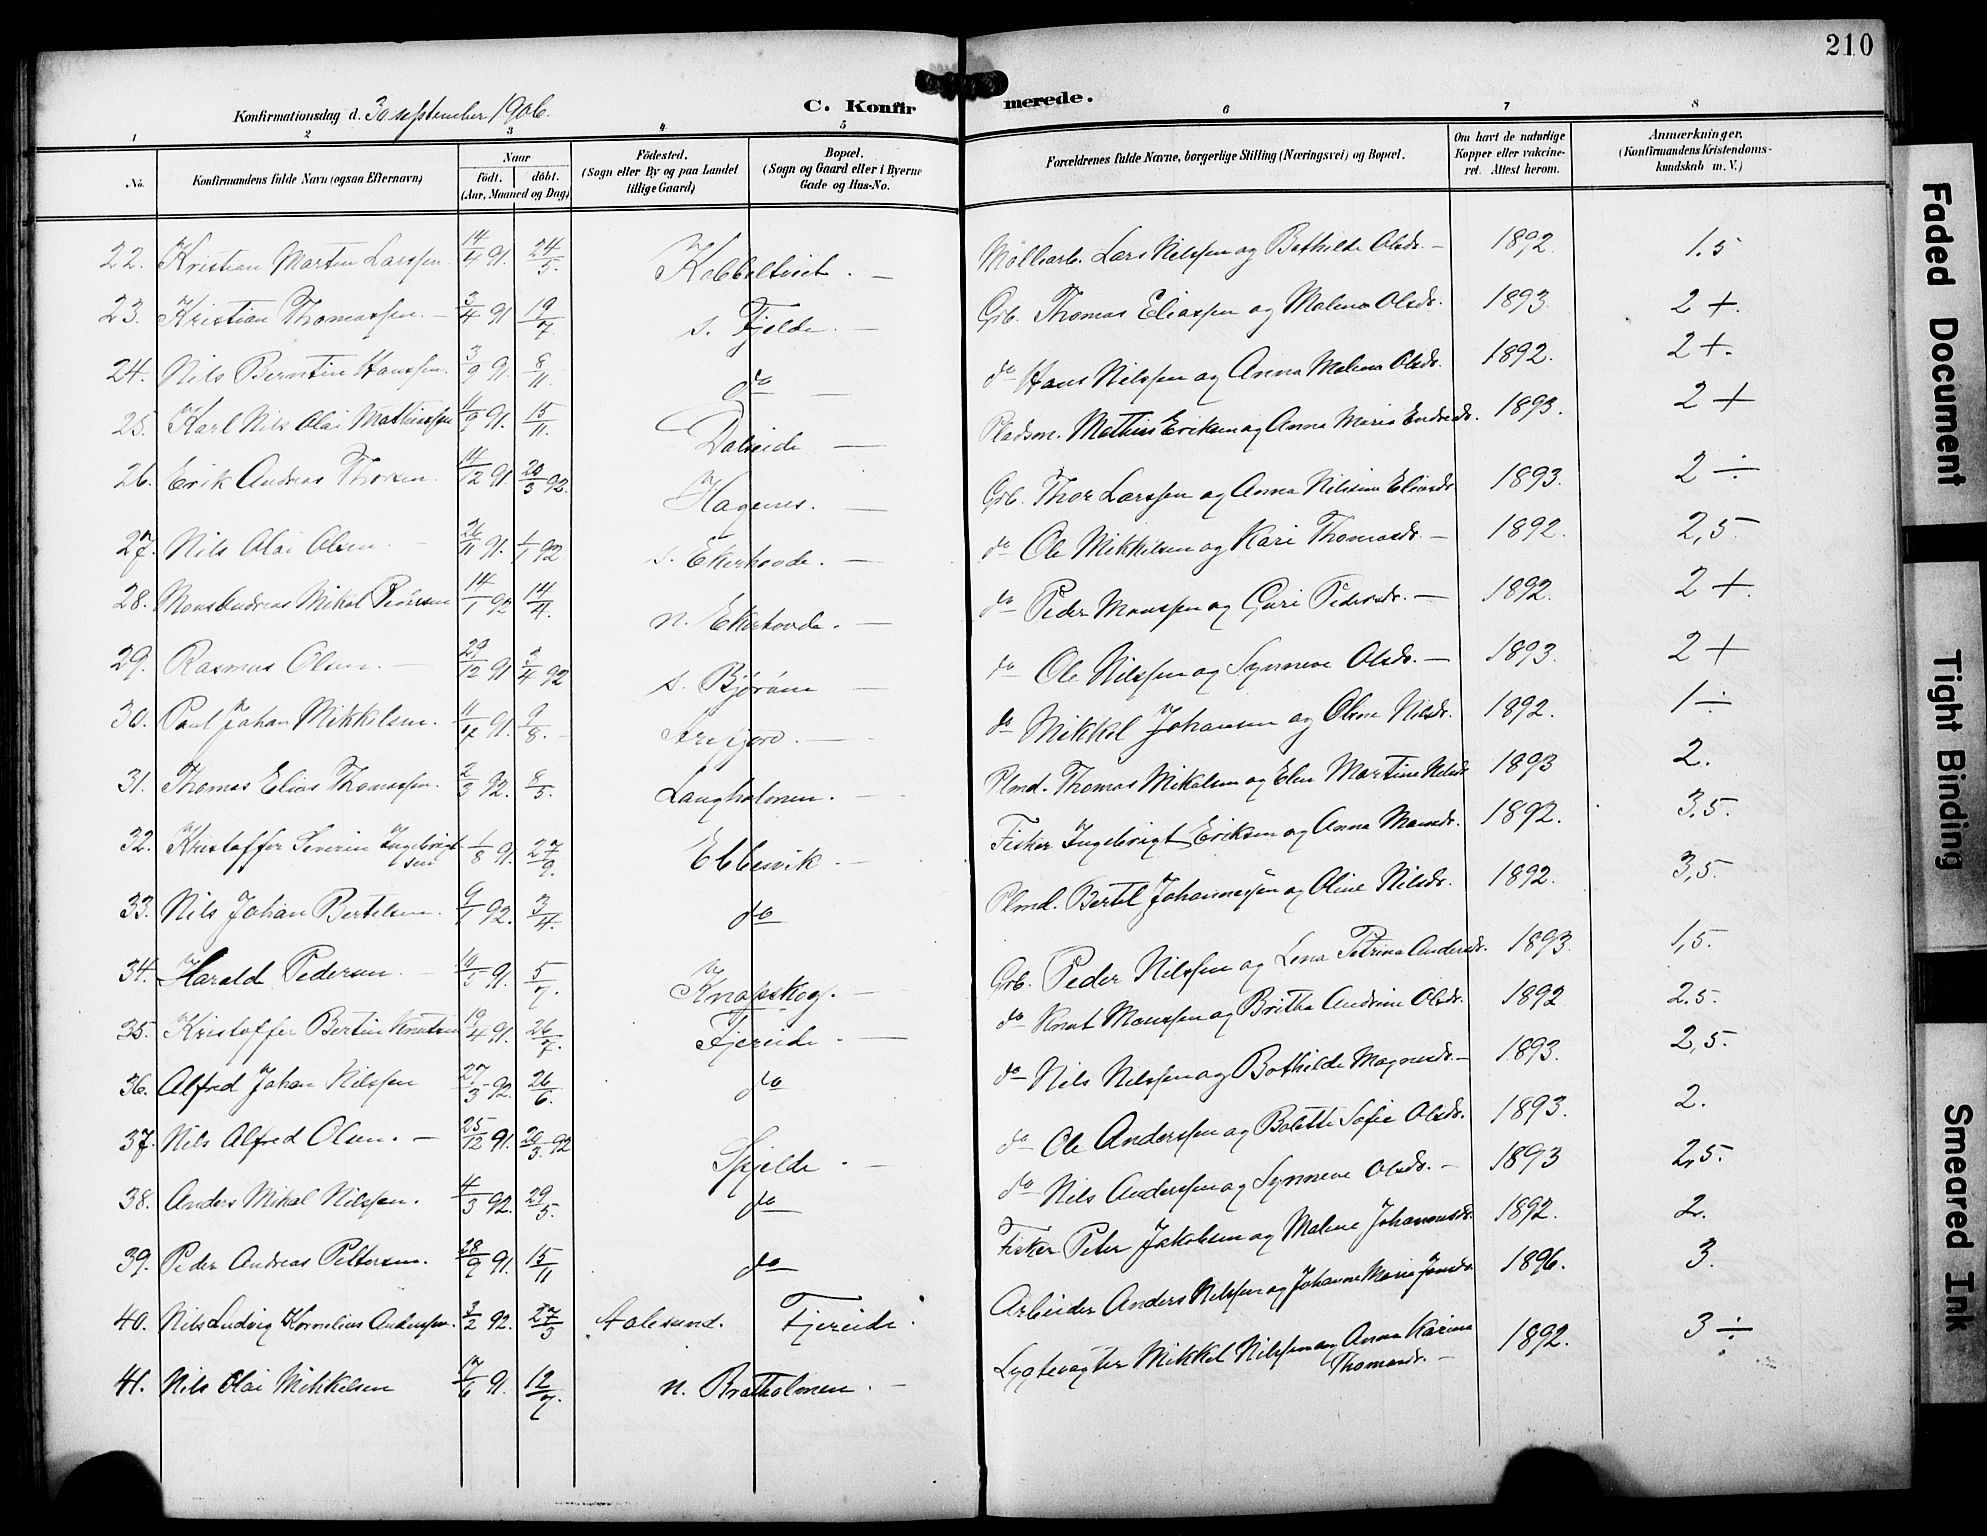 210
Konfirmationsdag d. 30 september 1906.
C. Konfirmerede.
1 2 3 4 5 6 7 8
No.
Konfirmandens fulde Navn (ogsaa Efternavn)
Naar
født. døbt.
(Aar, Maaned og Dag)
Födested.
(Sogn eller By og paa Landet
tillige Gaard)
Bopæl.
(Sogn og Gaard eller i Byerne
Gade og Hus-No.
Forældrenes fulde Navne, borgerlige Stilling (Næringsvei) og Bopæl.
Om havt de naturlige
Kopper eller vakcine-
ret. Attest herom.
Anmærkninger.
(Konfirmandens Kristendoms-
kundskab m. V.)
22. Kristian Martin Larssen 14/4 91. 24/5. Kobbeltveit. — Möllearb. Lars Nilssen og Bothilde Olsdr. — 1892. 1.5
23. Kristian Thomassen. — 3/4 91 19/7. s. Fjelde. — Grb. Thomas Eliassen og Malena Olsdr. 1893. 2+.
24. Nils Berntin Hanssen. 3/9 91. 8/11. do — do Hans Nilssen og Anna Malena Olsdr. 1892. 2+.
25. Karl Nils Olai Mathiassen 11/9 91. 15/11. Dalseide — Pladsm. Mathias Eriksen og Anna Maria Endresdr. 1893. 2+
26. Erik Andreas Thorsen. 14/12 91. 20/3 92. Hagenes. — Grb. Thor Larssen og Anna Nilsine Eliasdr 1893. 2÷
27. Nils Olai Olsen. — 26/11 91. 1/1 92 s. Ekerhovde. — do Ole Mikkelsen og Kari Thomasdr. — 1892. 2,5.
28. Mons Andreas Mikal Pedersen 14/1 92 14/4. n. Ekerhovde. — do Peder Monssen og Guri Pedersdr. — 1892. 2+.
29. Rasmus Olsen. — 29/12 91 2/4 92 s. Björöen — do Ole Nilssen og Synneve Olsdr. — 1893. 2+
30. Paul Johan Mikkelsen. 91. 9/8. — do Mikkel Johansen og Oline Nilsdr. 1892. 1÷
31. Thomas Elias Thomassen. 2/3 92. 8/5. Langholmen. — Plmd. Thomas Mikalsen og Elen Martine Nilsdr 1893 2.
32. Kristoffer Severin Ingebrigt-
sen 1/8 91. 27/9. Ebbesvik. — Fisker Ingebrigt Eriksen og Anna Monsdr. 1892. 3.5.
33. Nils Johan Bertelsen. 9/1 92. 3/4. do Plmd. Bertel Johannessen og Oline Nilsdr. 1892. 3,5.
34. Harald Pedersen. — 10/5 91. 5/7. Knapskog. — Grb. Peder Nilssen og Lena Petrina Andersdr. 1893. 1,5.
35. Kristoffer Bertin Knutsen 19/4 91. 26/7. Fjereide. — do Knut Monssen og Britha Andrine Olsdr. 1892 2.5.
36. Alfred Johan Nilssen 27/3 92. 26/6. do do Nils Nilssen og Bothilde Magnusdr. — 1893. 2,5.
37. Nils Alfred Olsen. — 25/12 91. 20/3. 92 Spjelde. — do Ole Anderssen og Bolette Sofie Olsdr. 1893. 2.
38. Anders Mikal Nilssen. 4/3 92. 29/5. do do Nils Anderssen og Synneve Olsdr. — 1893 2,5.
39. Peder Andreas Pettersen. 28/9 91. 15/11 do Fisker Peter Jakobsen og Malene Johannesdr. 1892. 2.
40. Nils Ludvig Kornelius Anderssen. 3/2 92. 27/3 Aalesund. Fjereide. Arbeider Anders Nilssen og Johanne Marie Jonsdr. 1896. 3.
41. Nils Olai Mikkelsen 17/6 91. 12/7. n. Bratholmen. — Lygtevagter Mikkel Nilssen og Anna Karina
Thomasdr. — 1892. 3÷
Faded Document
Tight Binding
Smeared Ink